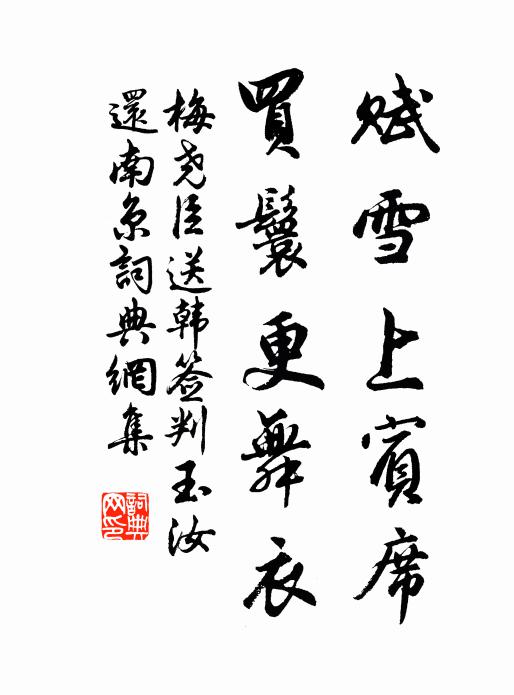 赋雪上賓席
買鬟更舞衣
梅尧臣送韩签判玉汝
還南京詞典網集
詞典網印